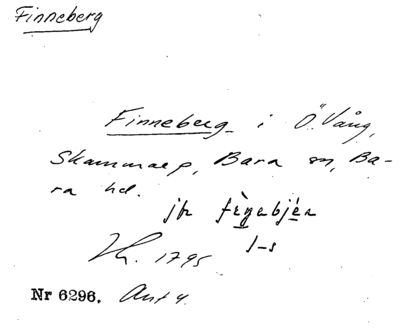 Finneberg
Finneberg i Ö. Vång,
Skammarp, Bara sn, Ba-
ra hd.
jfr
1-s
1795
Nr 6296. Ant 4.